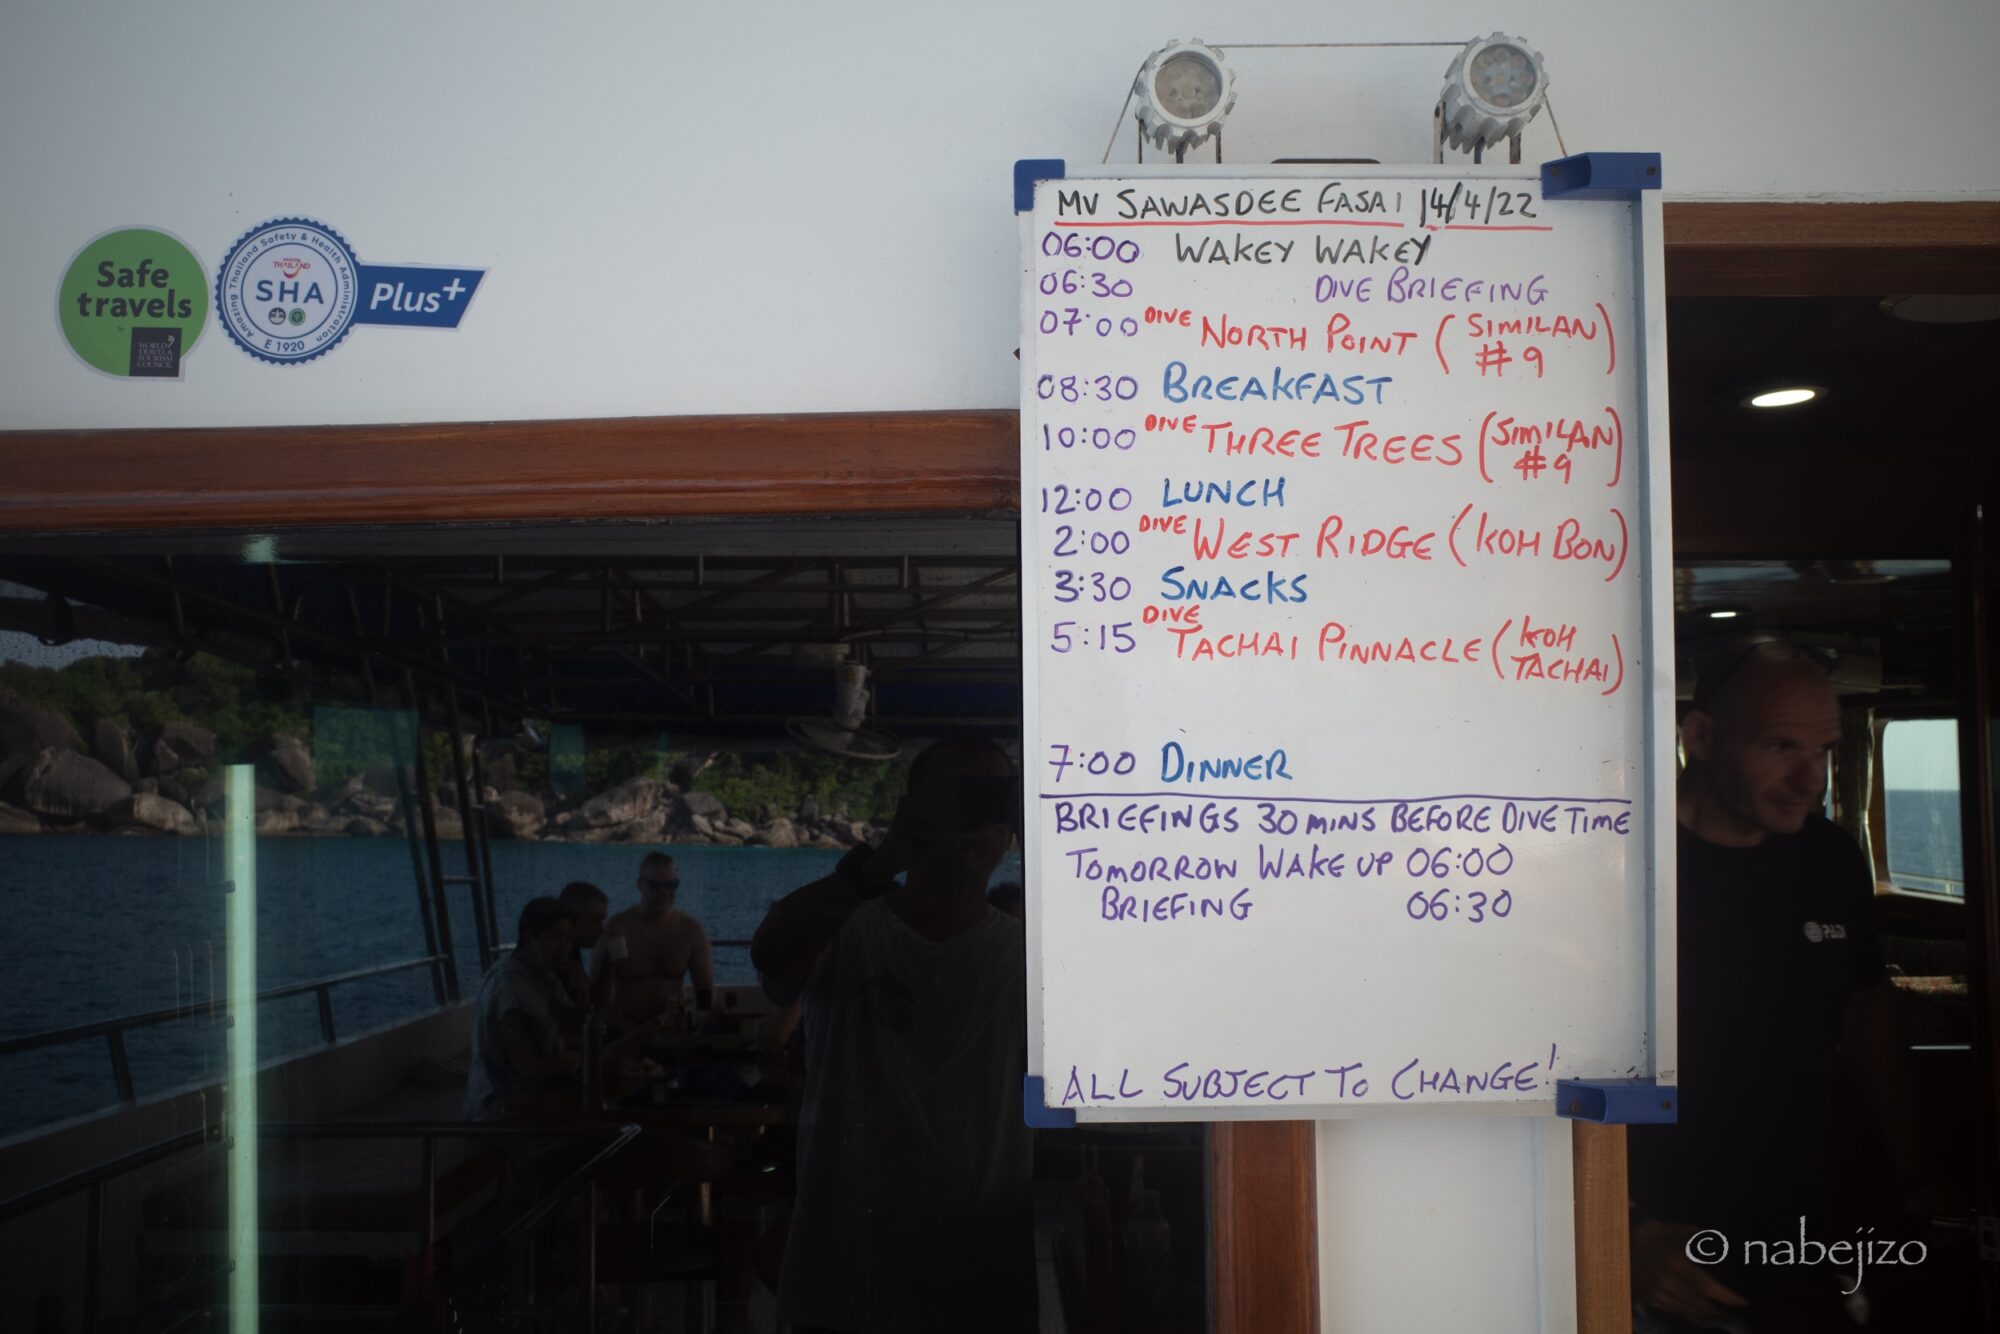 Safe
travels
by
WORLD
TRAVEL &
TOURISM
COUNCIL
Amazing Thailand Safety & Health Administration
amazing
THAILAND
SHA
Plus+
E 1920
MV SAWASDEE FASAI 14/4/22
06:00 WAKEY WAKEY
06:30 DIVE BRIEFING
07:00 DIVE NORTH POINT (SIMILAN #9)
08:30 BREAKFAST
10:00 DIVE THREE TREES (SIMILAN #9)
12:00 LUNCH
2:00 DIVE WEST RIDGE (KOH BON)
3:30 SNACKS
5:15 DIVE TACHAI PINNACLE (KOH TACHAI)
7:00 DINNER
BRIEFINGS 30 MINS BEFORE DIVE TIME
TOMORROW WAKE UP 06:00
BRIEFING 06:30
ALL SUBJECT TO CHANGE!
PADI
© nabejizo